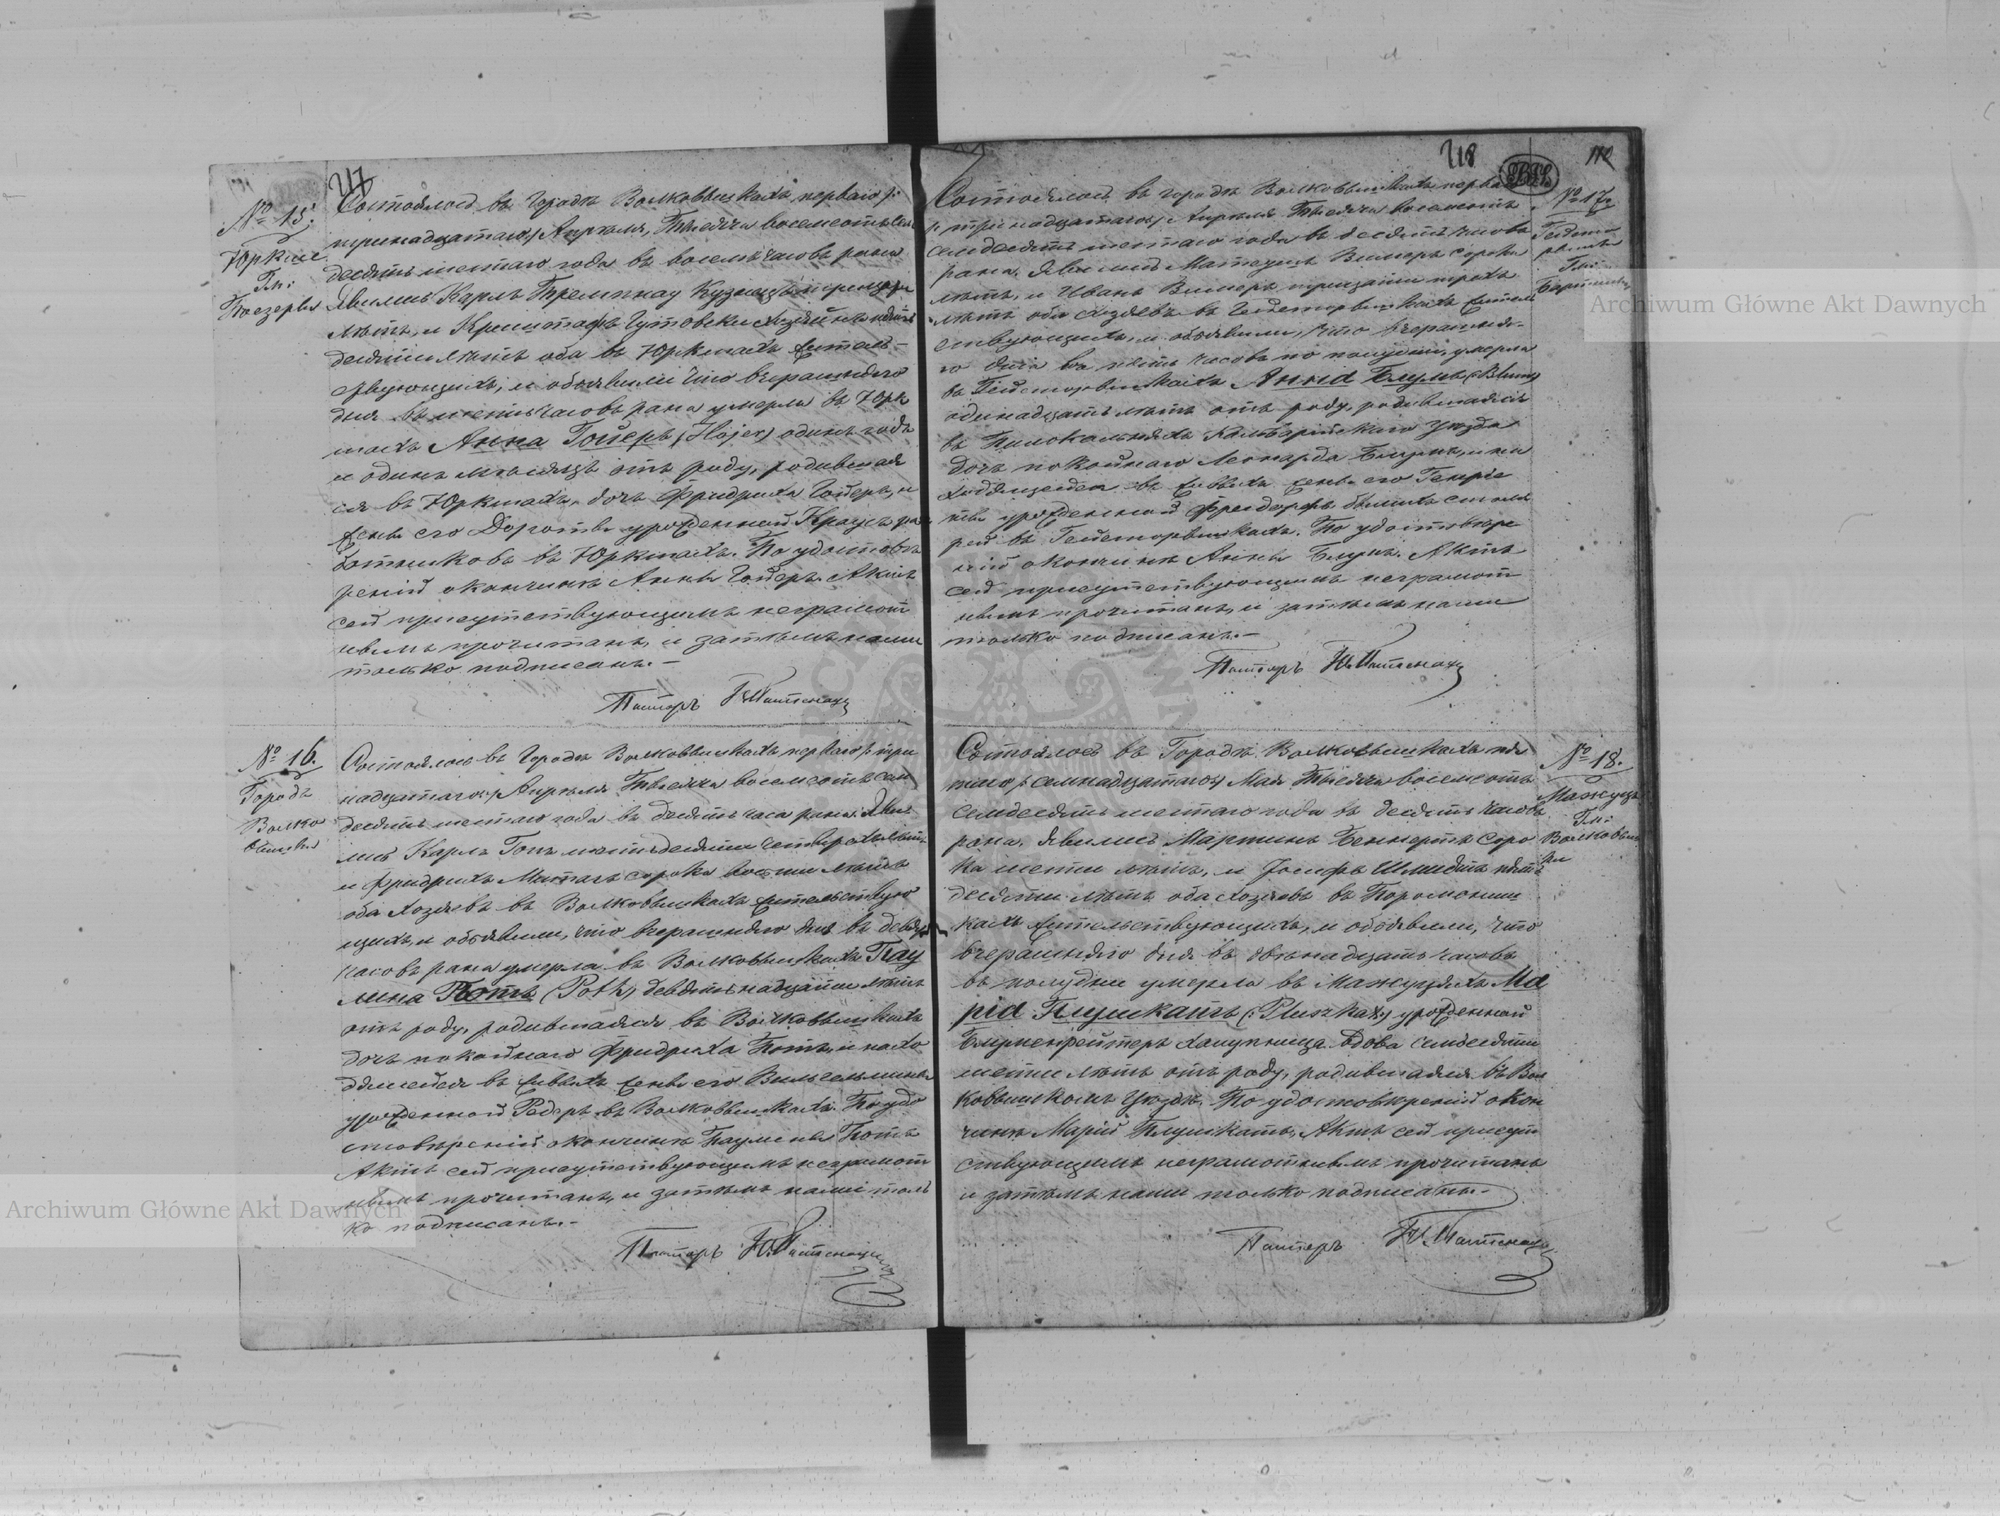 217
№ 15.
Юркше
Гм:
Поезеры
Состоялось въ Городѣ Волковышкахъ перваго /:
тринадцатаго:/ Апрѣля, Тысяча восемсотъ сем
десять шестаго года въ восемь часовъ рана
Явились Карлъ Тремпнау Кузнецъ
лѣтъ, и Криштофъ Гутовски
десяти лѣтъ оба въ Юркшахъ житель-
ствующихъ, и объявили что вчерашняго
дня въ шесть часовъ рана умерла въ Юрк
шахъ Анна Гоіеръ (Hojer) одинъ годъ
и одинъ мѣсяцъ отъ роду, родившая
ся въ Юркшахъ, дочь Фридриха Гоіеръ, и
жены его Дороты урожденной Краусъ ра
ботниковъ въ Юркшахъ. По удостовѣ
реніи о кончинѣ Анны Гоіеръ. Актъ
сей присутствующимъ неграмот
нымъ прочитанъ, и затѣмъ нами
только подписанъ.-
Пасторъ
№ 16.
Городъ
Волко
вышки
Состоялось въ Городѣ Волковышкахъ перваго /: три
надцатаго:/ Апрѣля Тысяча восемсотъ сем
десять шестаго года въ десять часа рана. Яви
лись Карлъ Гопъ шестьдесяти четырехъ лѣтъ
и Фридрихъ сорока восми лѣтъ
оба Хозяевъ въ Волковышкахъ жительствую
щихъ, и объявили, что вчерашняго дня въ девять
часовъ рана умерла въ Волковышкахъ Пау
лина Потъ (Poth) девятьнадцати лѣтъ
отъ роду, родившаяся въ Волковышкахъ
дочь покойнаго Фридриха Потъ, и нахо
дящейся въ живыхъ жены его Вильгельмины
урожденной Редеръ въ Волковышкахъ. По удо
стовѣреніи о кончинѣ Паулины Потъ
Актъ сей присутствующимъ неграмот
нымъ прочитанъ, и затѣмъ нами толь
ко подписанъ.-
Пасторъ
218
112
№ 17.
Гм:
Состоялось въ городѣ Волковышкахъ перва
/: тринадцатаго:/ Апрѣля Тысяча восемсотъ
семдесять шестаго года въ десять часовъ
рана. Явились Матеушъ Винеръ сорока
лѣтъ, и Иванъ Винеръ тридцати трехъ
лѣтъ оба Хозяевъ въ житель
ствующихъ, и объявили, что вчерашня-
го дня въ пять часовъ по полудни умерла
въ Анна Блумъ (:Blum:)
одинадцать лѣтъ отъ роду, родившаяся
въ Пилокальняхъ Кальварійскаго Уѣзда
дочь покойнаго Леонарда Блумъ, и на
ходящейся въ живыхъ жены его Генріе
ты урожденной бывшихъ столя
рей въ По удостовѣре
ніи о кончинѣ Анны Блумъ. Актъ
сей присутствующимъ неграмот
нымъ прочитанъ, и затѣмъ нами
только подписанъ.-
Пасторъ
№ 18.
Мажуцъ
Гм:
Волковыш
ки
Состоялось въ Городѣ Волковышкахъ пя
таго /: семнадцатаго:/ Мая Тысяча восемсотъ
семдесять шестаго года въ десять часовъ
рана. Явились Мартинъ Беннертъ соро
ка шести лѣтъ, и Іосифъ Шмидтъ пять
десяти лѣтъ оба Хозяевъ въ Поромониш
кахъ жительствующихъ, и объявили, что
вчерашняго дня въ двѣнадцать часовъ
въ полудни умерла въ Мажуцяхъ Ма
рія Плушкатъ (:Pluszkat:) урожденная
Блуменрейтеръ халупница вдова семдесяти
шести лѣтъ отъ роду, родившаяся въ Вол
ковышкомъ Уѣздѣ. По удостовѣреніи о кон
чинѣ Маріи Плушкатъ, Актъ сей присут
ствующимъ неграмотнымъ прочитанъ
и затѣмъ нами только подписанъ.-
Пасторъ
Archiwum Główne Akt Dawnych
Archiwum Główne Akt Dawnych